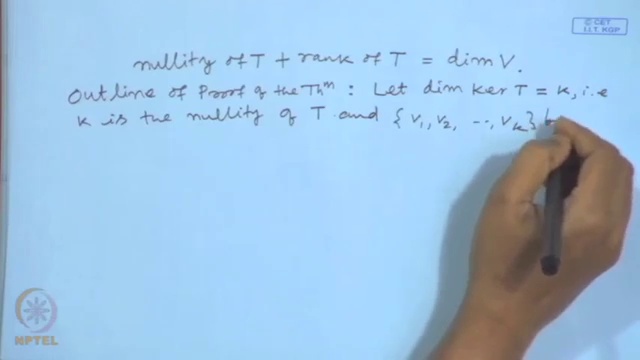 © CET
I.I.T. KGP
nullity of T + rank of T = dim V.
Outline of Proof of the Th^m : Let dim ker T = k, i.e
k is the nullity of T and { v₁, v₂, ..., v_k } b
NPTEL